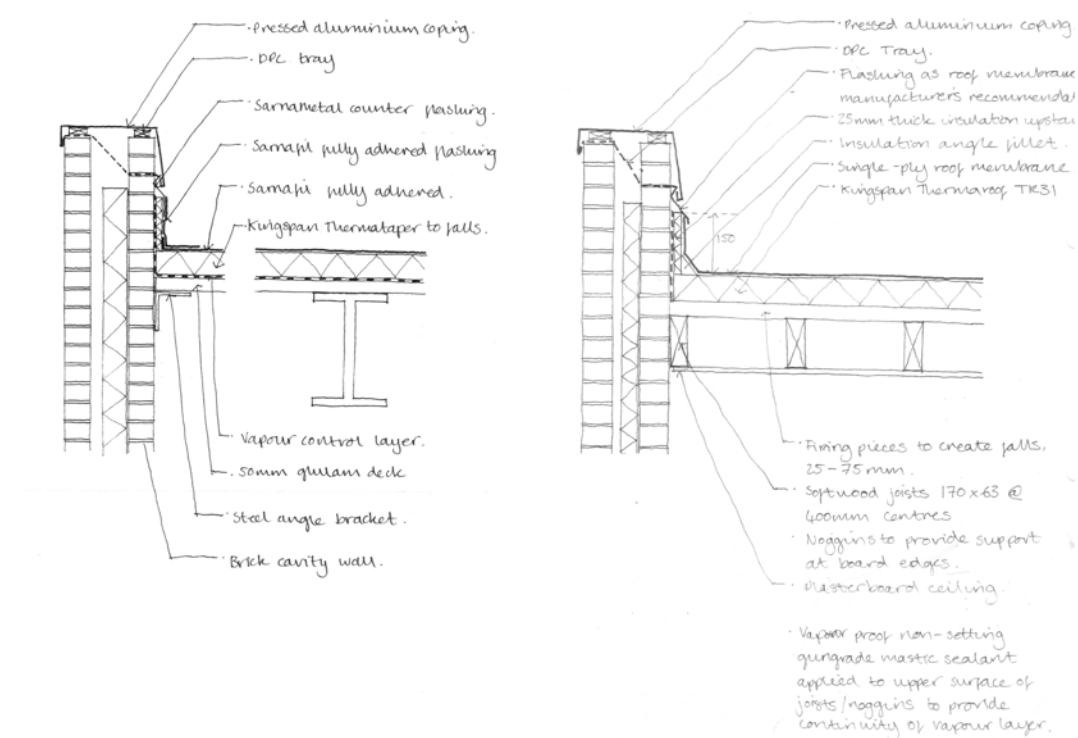 · Pressed aluminium coping.
· DPC tray
· Sarnametal counter flashing.
· Sarnafil fully adhered flashing
· Sarnafil fully adhered.
· Kingspan Thermataper to falls.
· Vapour control layer.
· 50mm glulam deck
· Steel angle bracket.
· Brick cavity wall.
· Pressed aluminium coping.
· DPC Tray.
· Flashing as roof membrane
manufacturers recommendat
· 25mm thick insulation upsta
· Insulation angle fillet.
· Single-ply roof membrane
· Kingspan Thermaroof TR31
150
· Firring pieces to create falls,
25-75mm.
· Softwood joists 170x63 @
400mm centres
· Noggins to provide support
at board edges.
· Plasterboard ceiling.
· Vapour proof non-setting
gungrade mastic sealant
applied to upper surface of
joists/noggins to provide
continuity of vapour layer.